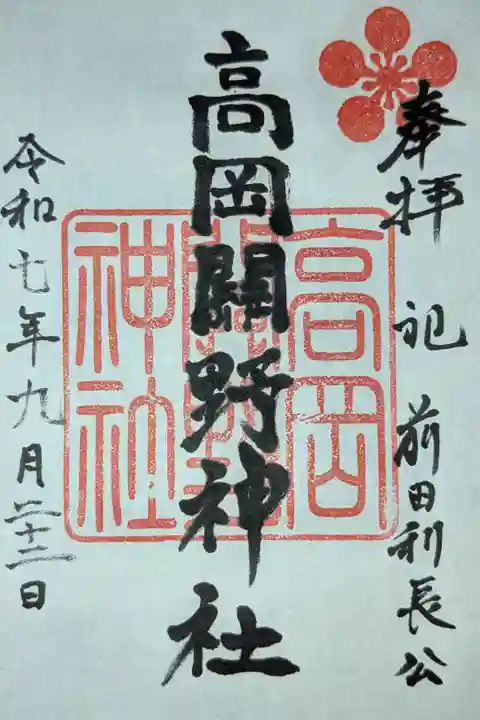 奉拝 祀 前田利長公
高岡關野神社
令和七年九月二十二日
高岡
神社